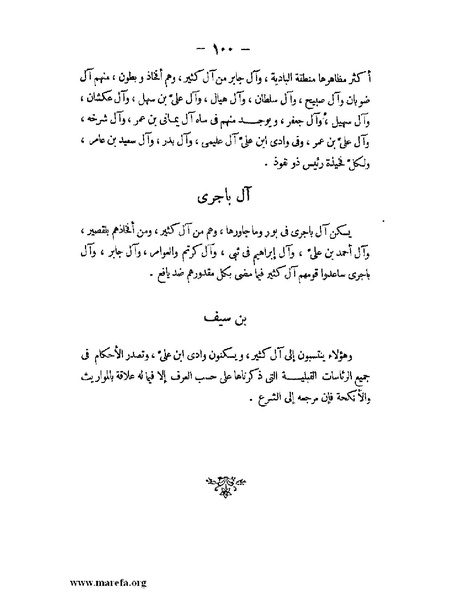 — ١٠٠ —
أكثر مظاهرها منطقة البادية ، وآل جابر من آل كثير ، وهم أفخاذ و بطون ، منهم آل
ضوبان وآل صبيح ، وآل سلطان ، وآل هيال ، وآل علىّ بن سهل ، وآل عكشان ،
وآل سهيل ، وآل جعفر ، و يوجد منهم فى ساه آل يمانى بن عمر ، وآل شرخه ،
وآل علىّ بن عمر ، وفى وادى ابن علىّ آل عليمى ، وآل بدر ، وآل سعيد بن عامر ،
ولكلّ فخيذة رئيس ذو نفوذ .
آل باجرى
يسكن آل باجرى فى بور وماجاورها ، وهم من آل كثير ، ومن أفخاذهم بلقصير ،
وآل أحمد بن علىّ ، وآل إبراهيم فى ثبى ، وآل كرتم والعوامر ، وآل جابر ، وآل
باجرى ساعدوا قومهم آل كثير فيما مضى بكل مقدورهم ضد يافع .
بن سيف
وهؤلاء ينتسبون إلى آل كثير ، و يسكنون وادى ابن علىّ ، وتصدر الأحكام فى
جميع الرئاسات القبلية التى ذكرناها على حسب العرف إلا فيما له علاقة بالمواريث
والأنكحة فإن مرجعه إلى الشرع .
www.marefa.org